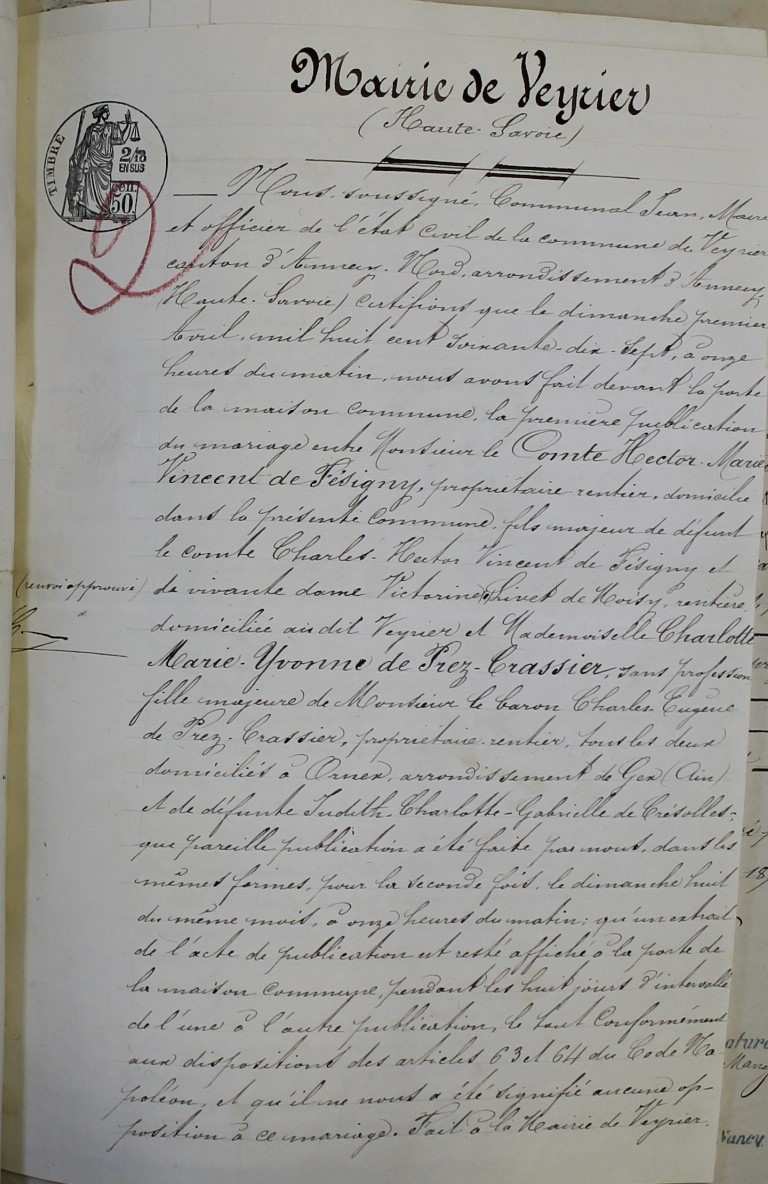 Mairie de Veyrier
(Haute-Savoie)
TIMBRE
2/10
EN SUS
50
Nous, soussigné, Communal Jean, Maire
et officier de l'état civil de la commune de Veyrier
canton d'Annecy-Nord, arrondissement d'Annecy
(Haute-Savoie) certifions que le dimanche premier
Avril, mil huit cent soixante-dix-sept, à onze
heures du matin, nous avons fait devant la porte
de la maison commune, la première publication
du mariage entre Monsieur le Comte Hector-Marie
Vincent de Fésigny, propriétaire rentier, domicilié
dans la présente commune, fils majeur de défunt
le comte Charles-Hector Vincent de Fésigny et
(renvoi approuvé)
de vivante dame Victorine Livet de Moisy, rentière,
domiciliée au dit Veyrier et Mademoiselle Charlotte
Marie-Yvonne de Prez-Crassier, sans profession
fille majeure de Monsieur le baron Charles Eugène
de Prez-Crassier, propriétaire-rentier, tous les deux
domiciliés à Ornex, arrondissement de Gex (Ain)
et de défunte Judith-Charlotte-Gabrielle de Crésolles;
que pareille publication a été faite par nous, dans les
mêmes formes, pour la seconde fois, le dimanche huit
du même mois, à onze heures du matin; qu'un extrait
de l'acte de publication est resté affiché à la porte de
la maison commune, pendant les huit jours d'intervalle
de l'une à l'autre publication, le tout conformément
aux dispositions des articles 63 et 64 du Code Na-
poléon, et qu'il ne nous a été signifié aucune op-
position à ce mariage. Fait à la Mairie de Veyrier.
ature
Nancy.